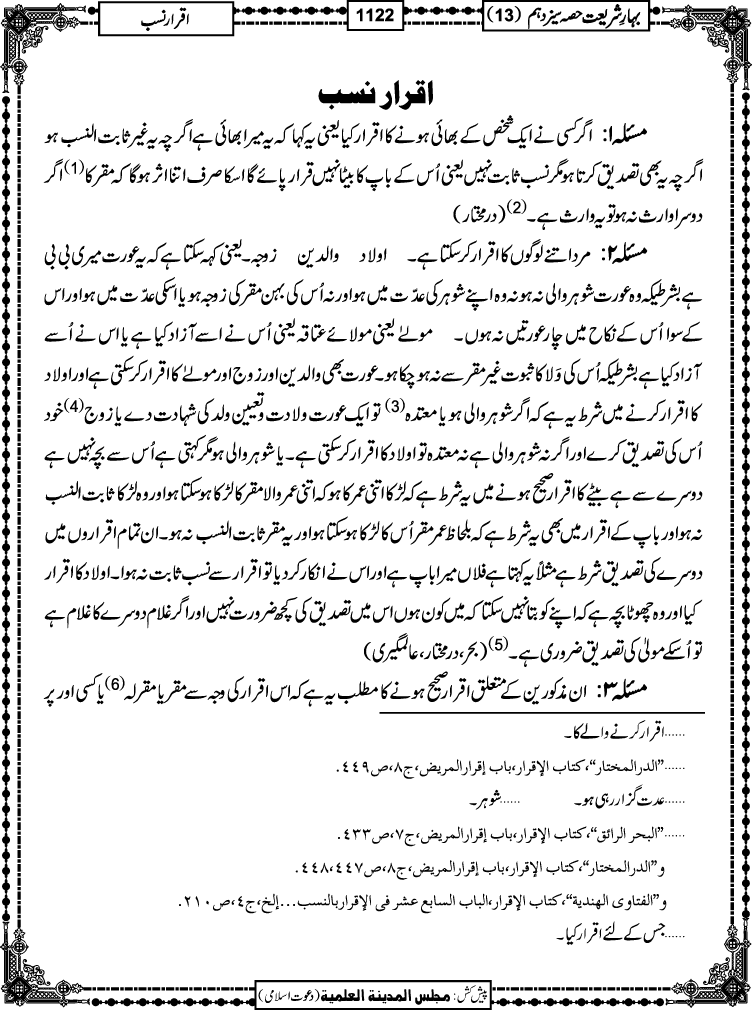 بہارِ شریعت حصہ سیزدہم (13)
1122
اقرار نسب
اقرار نسب
مسئلہ ۱: اگر کسی نے ایک شخص کے بھائی ہونے کا اقرار کیا یعنی یہ کہا کہ یہ میرا بھائی ہے اگرچہ یہ غیر ثابت النسب ہو
اگرچہ یہ بھی تصدیق کرتا ہو مگر نسب ثابت نہیں یعنی اُس کے باپ کا بیٹا نہیں قرار پائے گا اسکا صرف اتنا اثر ہوگا کہ مقر کا (1) اگر
دوسرا وارث نہ ہو تو یہ وارث ہے۔ (2) (درمختار)
مسئلہ ۲: مرد اتنے لوگوں کا اقرار کر سکتا ہے۔ اولاد والدین زوجہ۔ یعنی کہہ سکتا ہے کہ یہ عورت میری بی بی
ہے بشرطیکہ وہ عورت شوہر والی نہ ہو نہ وہ اپنے شوہر کی عدّت میں ہو اور نہ اُس کی بہن مقر کی زوجہ ہو یا اسکی عدّت میں ہو اور اس
کے سوا اُس کے نکاح میں چار عورتیں نہ ہوں۔ مولےٰ یعنی مولائے عتاقہ یعنی اُس نے اسے آزاد کیا ہے یا اس نے اُسے
آزاد کیا ہے بشرطیکہ اُس کی وَلا کا ثبوت غیر مقر سے نہ ہو چکا ہو۔ عورت بھی والدین اور زوج اور مولےٰ کا اقرار کر سکتی ہے اور اولاد
کا اقرار کرنے میں شرط یہ ہے کہ اگر شوہر والی ہو یا معتدہ (3) تو ایک عورت ولادت و تعیین ولد کی شہادت دے یا زوج (4) خود
اُس کی تصدیق کرے اور اگر نہ شوہر والی ہے نہ معتدہ تو اولاد کا اقرار کر سکتی ہے۔ یا شوہر والی ہو مگر کہتی ہے اُس سے بچہ نہیں ہے
دوسرے سے ہے بیٹے کا اقرار صحیح ہونے میں یہ شرط ہے کہ لڑکا اتنی عمر کا ہو کہ اتنی عمر والا مقر کا لڑکا ہو سکتا ہو اور وہ لڑکا ثابت النسب
نہ ہو اور باپ کے اقرار میں بھی یہ شرط ہے کہ بلحاظ عمر مقر اُس کا لڑکا ہو سکتا ہو اور یہ مقر ثابت النسب نہ ہو۔ ان تمام اقراروں میں
دوسرے کی تصدیق شرط ہے مثلاً یہ کہتا ہے فلاں میرا باپ ہے اور اس نے انکار کر دیا تو اقرار سے نسب ثابت نہ ہوا۔ اولاد کا اقرار
کیا اور وہ چھوٹا بچہ ہے کہ اپنے کو بتا نہیں سکتا کہ میں کون ہوں اس میں تصدیق کی کچھ ضرورت نہیں اور اگر غلام دوسرے کا غلام ہے
تو اُسکے مولیٰ کی تصدیق ضروری ہے۔ (5) (بحر، درمختار، عالمگیری)
مسئلہ ۳: ان مذکورین کے متعلق اقرار صحیح ہونے کا مطلب یہ ہے کہ اس اقرار کی وجہ سے مقر یا مقرلہ (6) یا کسی اور پر
......اقرار کرنے والے کا۔
......"الدرالمختار"، کتاب الإقرار، باب إقرار المریض، ج۸، ص۴۴۹.
......عدت گزار رہی ہو۔ ......شوہر۔
......"البحر الرائق"، کتاب الإقرار، باب إقرار المریض، ج۷، ص۴۳۳.
و"الدرالمختار"، کتاب الإقرار، باب إقرار المریض، ج۸، ص۴۴۷، ۴۴۸.
و"الفتاوی الهندیة"، کتاب الإقرار، الباب السابع عشر فی الإقرار بالنسب...إلخ، ج۴، ص۲۱۰.
......جس کے لئے اقرار کیا۔
پیش کش: مجلس المدینة العلمیة (دعوت اسلامی)